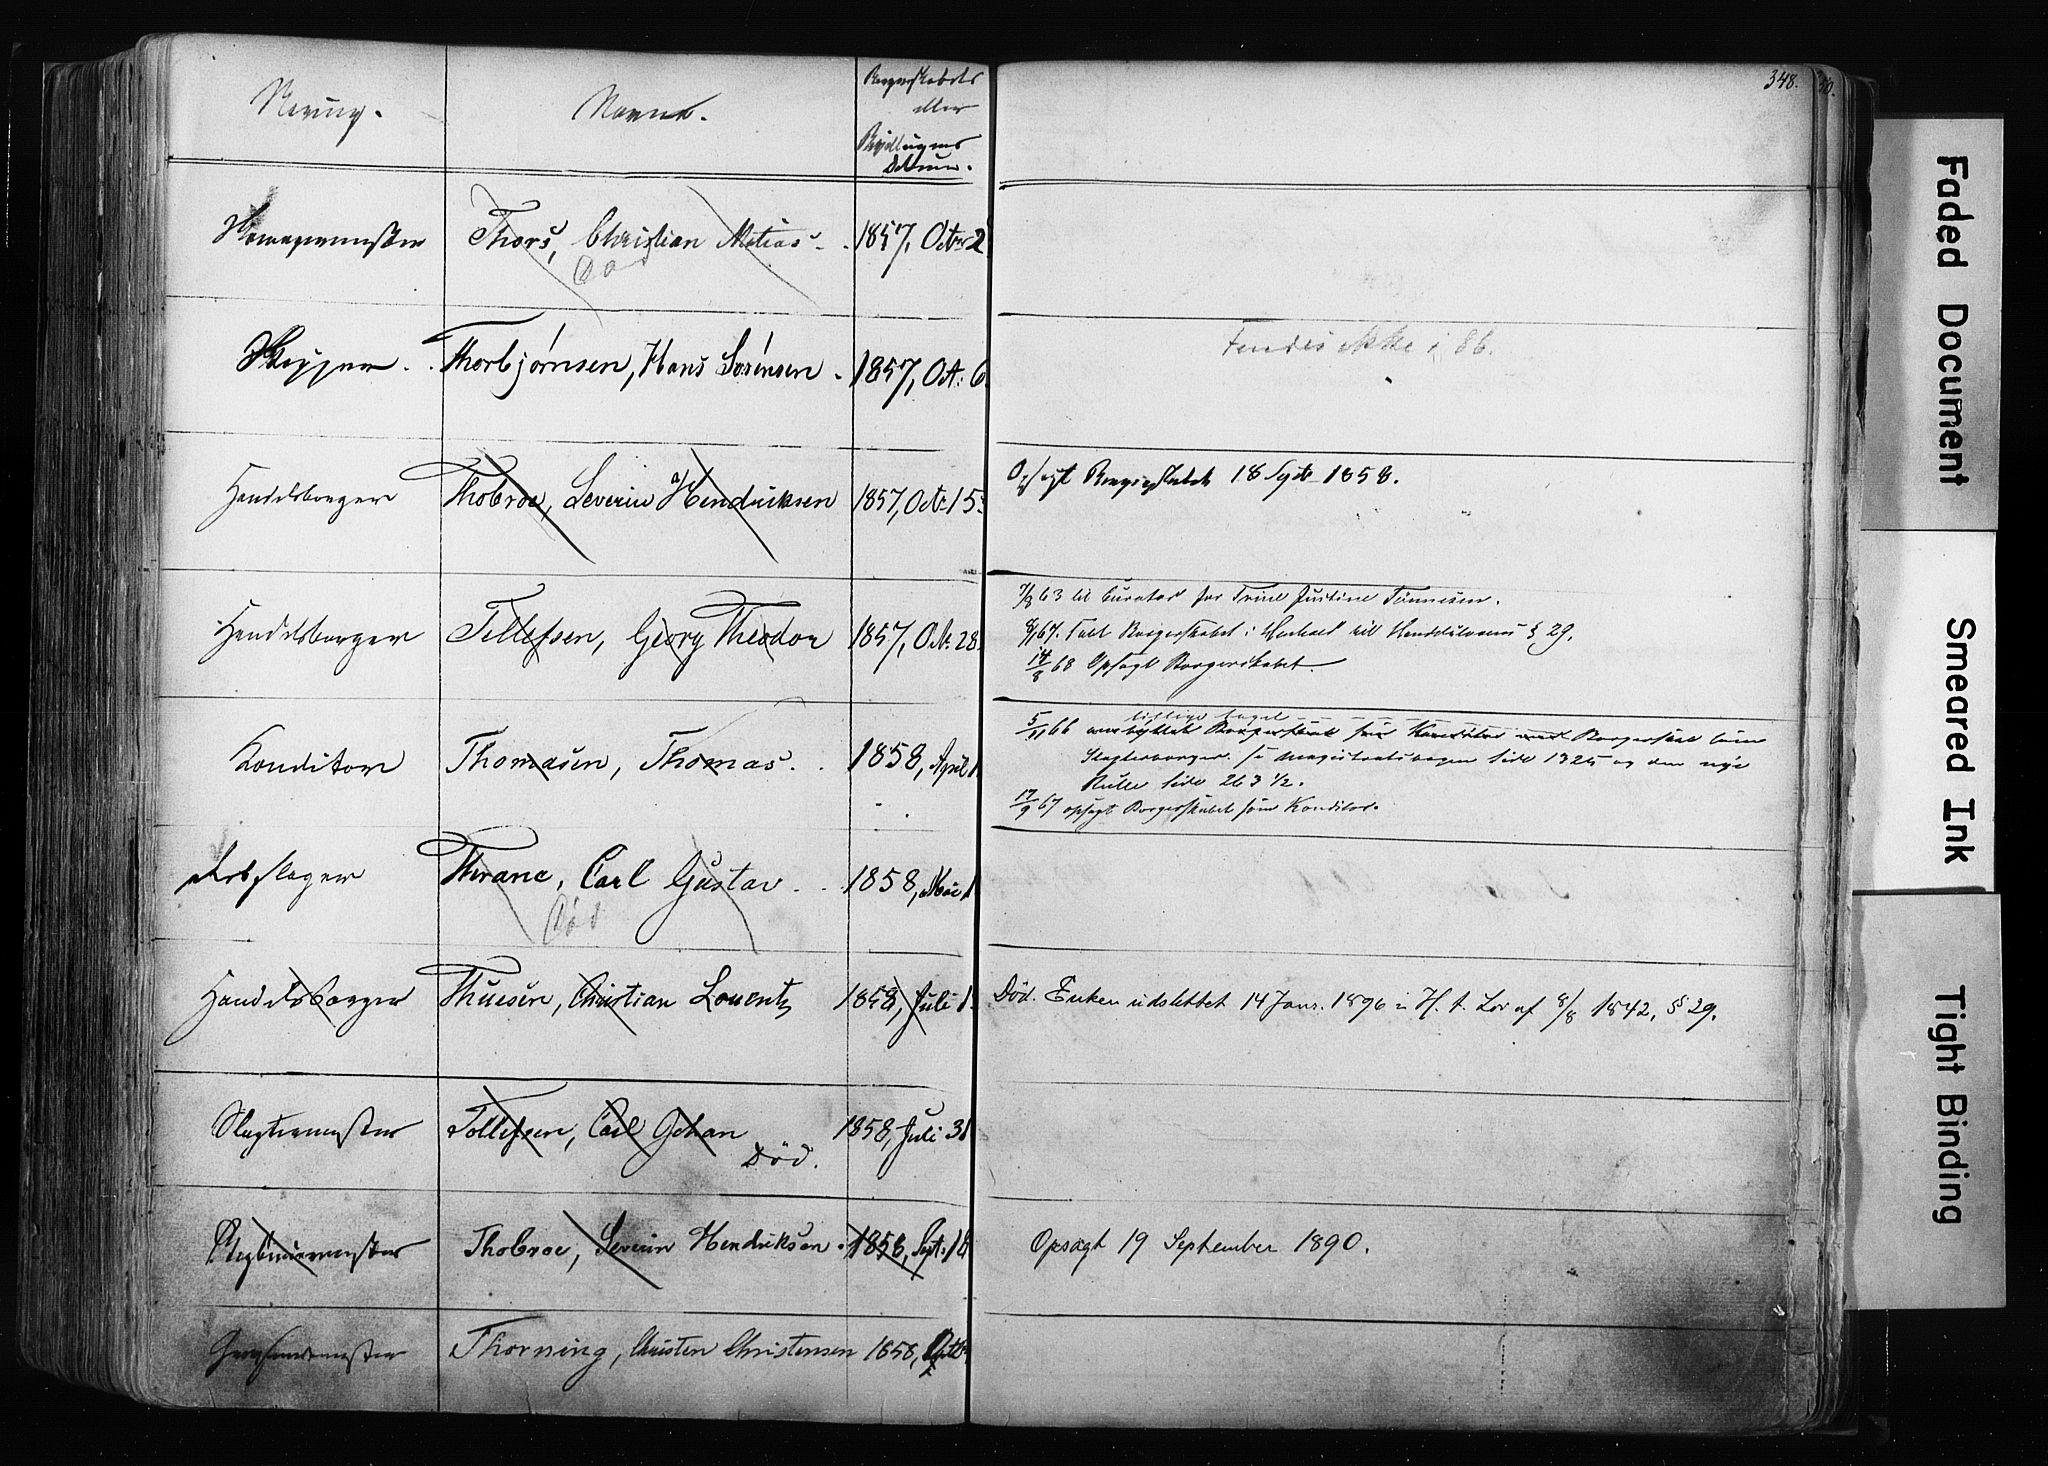 Næring.
Navne.
Borgerskabets
eller
Bevillingens
Datum.
348.
Thors, Christian Matias.
Død
1857, Octr 2
Skipper.
Thorbjørnsen, Hans Sørensen.
1857, Oct: 6.
Findes ikke i 86.
Handelsborger
Thobroe, Severin Hendriksen
1857, Oct: 15:
Opsagt Borgerskabet 18 Septr 1858.
Handelsborger
Tellefsen, Georg Theodor
1857, Oct. 28.
7/8 63 til Curator for Trine Justine Tønnesen.
8/1 67. Tabt Borgerskabet i Henhold til Handelslovens § 29.
14/8 68 Opsagt Borgerskabet.
Konditor
Thomasen, Thomas.
1858, April 1
5/11 66 ombyttet Borgerskab som Konditor med Borgerskab som
Slagterborger. se Magistratsbogen side 1325 og den nye
Rulle side 263 1/2.
17/9 67 opsagt Borgerskabet som Konditor.
Thrane, Carl Gustav.
Død
1858, Mai 1
Handelsborger
Thuesen, Christian Lorentz
1858, Juli 1.
Død. Enken udslettet 14 Janr. 1896 i H. t. Lov af 8/8 1842, § 29.
Slagtermester
Tollefsen, Carl Johan
Død.
1858, Juli 31
Thobroe, Severin Hendriksen
1858, Sept: 18
Opsagt 19 September 1890.
Thorning, Christen Christensen
1858,
Faded Document
Smeared Ink
Tight Binding